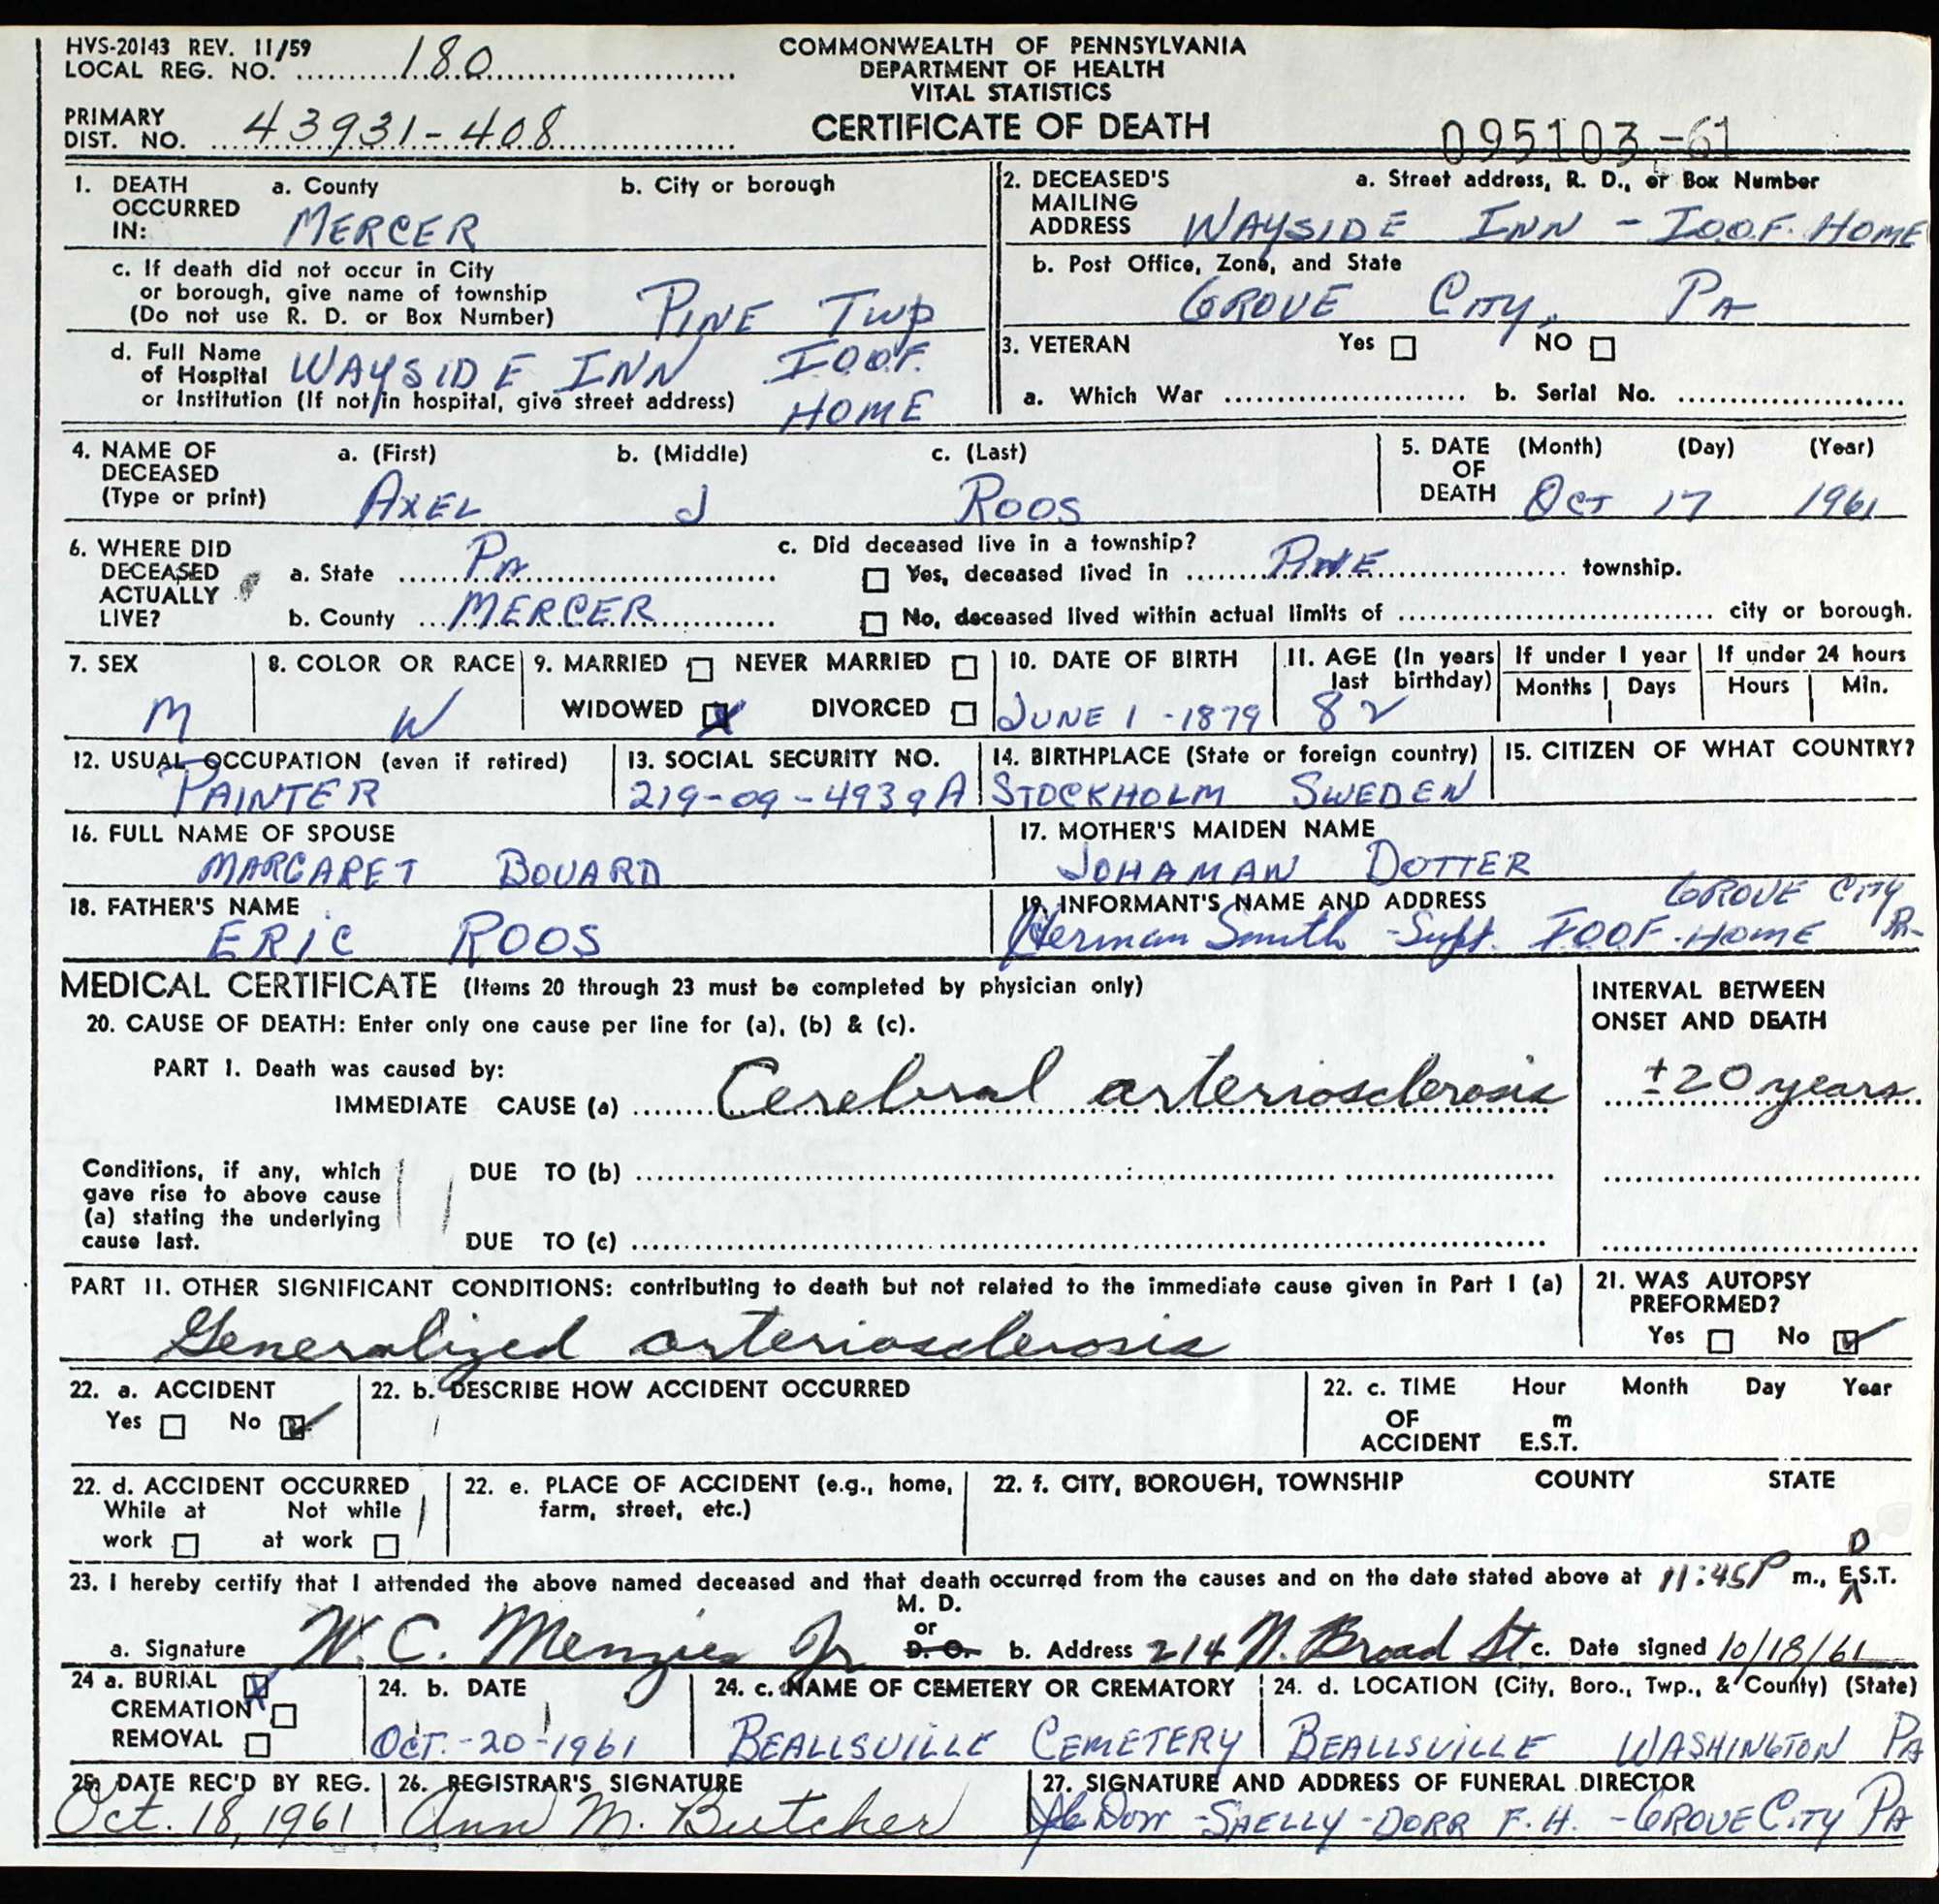 HVS-20143 REV. 11/59
LOCAL REG. NO. 180
COMMONWEALTH OF PENNSYLVANIA
DEPARTMENT OF HEALTH
VITAL STATISTICS
CERTIFICATE OF DEATH
PRIMARY
DIST. NO. 43931-408
095103-61
1. DEATH OCCURRED IN: a. County b. City or borough
MERCER
c. If death did not occur in City
or borough, give name of township
(Do not use R. D. or Box Number) PINE TWP
d. Full Name
of Hospital WAYSIDE INN I.O.O.F.
or Institution (If not in hospital, give street address) HOME
2. DECEASED'S MAILING ADDRESS a. Street address, R. D., or Box Number
WAYSIDE INN - I.O.O.F. HOME
b. Post Office, Zone, and State
GROVE CITY, PA
3. VETERAN Yes NO
a. Which War b. Serial No.
4. NAME OF DECEASED (Type or print) a. (First) b. (Middle) c. (Last)
AXEL J ROOS
5. DATE OF DEATH (Month) (Day) (Year)
OCT 17 1961
6. WHERE DID DECEASED ACTUALLY LIVE?
a. State PA
b. County MERCER
c. Did deceased live in a township?
Yes, deceased lived in PINE township.
No, deceased lived within actual limits of city or borough.
7. SEX
M
8. COLOR OR RACE
W
9. MARRIED NEVER MARRIED
WIDOWED X DIVORCED
10. DATE OF BIRTH
JUNE 1 - 1879
11. AGE (In years last birthday)
82
If under 1 year
Months Days
If under 24 hours
Hours Min.
12. USUAL OCCUPATION (even if retired)
PAINTER
13. SOCIAL SECURITY NO.
219-09-4939A
14. BIRTHPLACE (State or foreign country)
STOCKHOLM SWEDEN
15. CITIZEN OF WHAT COUNTRY?
16. FULL NAME OF SPOUSE
MARGARET BOUARD
17. MOTHER'S MAIDEN NAME
JOHAMAN DOTTER
18. FATHER'S NAME
ERIC ROOS
19. INFORMANT'S NAME AND ADDRESS GROVE CITY
Herman Smith - Supt. IOOF. HOME PA
MEDICAL CERTIFICATE (Items 20 through 23 must be completed by physician only)
20. CAUSE OF DEATH: Enter only one cause per line for (a), (b) & (c).
INTERVAL BETWEEN
ONSET AND DEATH
PART I. Death was caused by:
IMMEDIATE CAUSE (a) Cerebral arteriosclerosis ±20 years
Conditions, if any, which
gave rise to above cause
(a) stating the underlying
cause last.
DUE TO (b)
DUE TO (c)
PART II. OTHER SIGNIFICANT CONDITIONS: contributing to death but not related to the immediate cause given in Part I (a)
Generalized arteriosclerosis
21. WAS AUTOPSY
PREFORMED?
Yes No ✓
22. a. ACCIDENT
Yes No ✓
22. b. DESCRIBE HOW ACCIDENT OCCURRED
22. c. TIME OF ACCIDENT Hour Month Day Year
m
E.S.T.
22. d. ACCIDENT OCCURRED
While at work Not while at work
22. e. PLACE OF ACCIDENT (e.g., home,
farm, street, etc.)
22. f. CITY, BOROUGH, TOWNSHIP COUNTY STATE
23. I hereby certify that I attended the above named deceased and that death occurred from the causes and on the date stated above at 11:45P m., E.S.T.
D
a. Signature W. C. Menzies Jr M. D. or D. O. b. Address 214 N. Broad St c. Date signed 10/18/61
24 a. BURIAL X
CREMATION
REMOVAL
24. b. DATE
OCT.-20-1961
24. c. NAME OF CEMETERY OR CREMATORY
BEALLSVILLE CEMETERY
24. d. LOCATION (City, Boro., Twp., & County) (State)
BEALLSVILLE WASHINGTON PA
25. DATE REC'D BY REG.
Oct. 18, 1961
26. REGISTRAR'S SIGNATURE
Ann M. Butcher
27. SIGNATURE AND ADDRESS OF FUNERAL DIRECTOR
Dorr - SHELLY-DORR F. H. - GROVE CITY PA